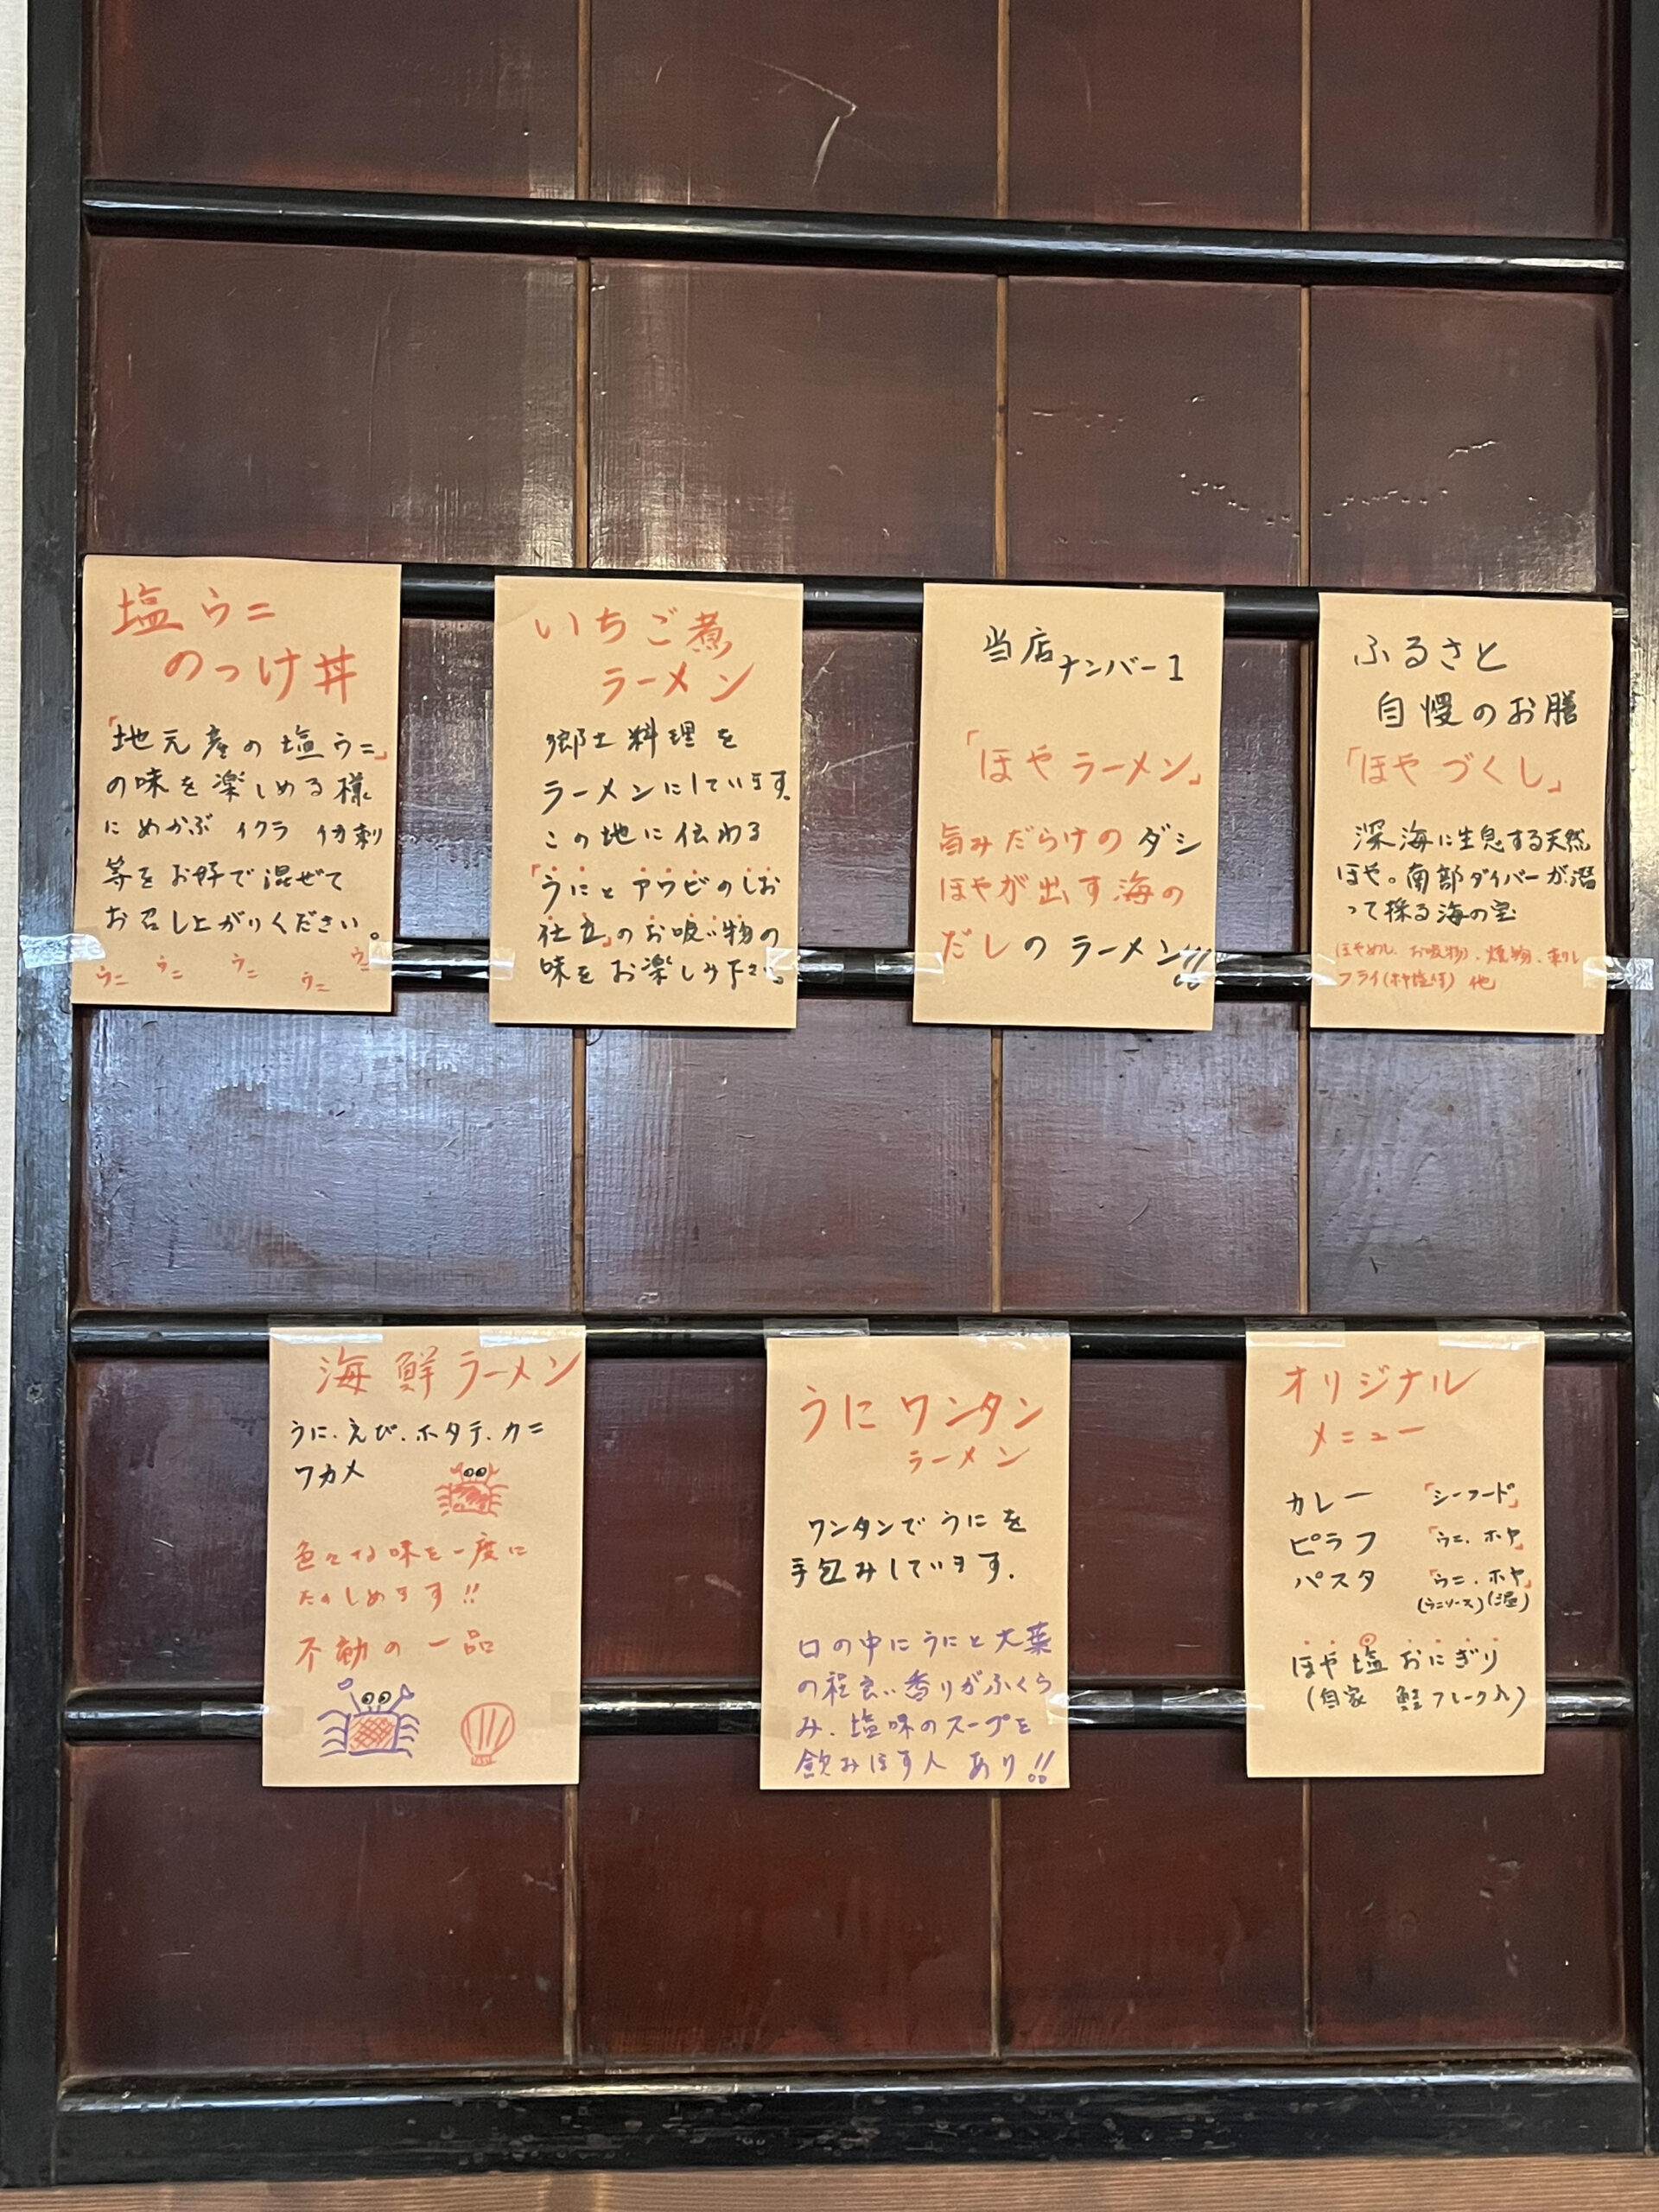 塩ウニ
のっけ丼
「地元産の塩ウニ」
の味を楽しめる様
にめかぶ イクラ イカ刺
等をお好で混ぜて
お召し上がりください。
ウニ ウニ ウニ ウニ ウニ
いちご煮
ラーメン
郷土料理を
ラーメンにしています。
この地に伝わる
「うにとアワビのしお
仕立」のお吸い物の
味をお楽しみ下さい。
当店ナンバー1
「ほやラーメン」
旨みだらけのダシ
ほやが出す海の
だしのラーメン!!
ふるさと
自慢のお膳
「ほやづくし」
深海に生息する天然
ほや。南部ダイバーが潜
って採る海の宝
ほやめし、お吸物、焼物、刺し
フライ() 他
海鮮ラーメン
うに、えび、ホタテ、カニ
ワカメ
色々な味を一度に
たのしめます!!
不動の一品
うにワンタン
ラーメン
ワンタンでうにを
手包みしています。
口の中にうにと大葉
の程良い香りがふくら
み、塩味のスープを
飲みほす人あり!!
オリジナル
メニュー
カレー 「シーフード」
ピラフ 「ウニ、ホヤ」
パスタ 「ウニ、ホヤ」
(ウニソース)(塩)
ほや塩おにぎり
(自家 鮭フレーク入)